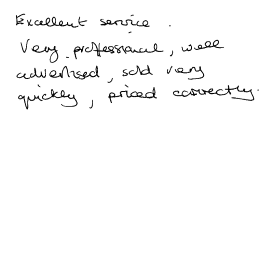 Excellent service.
Very professional, well
advertised, sold very
quickly, priced correctly.